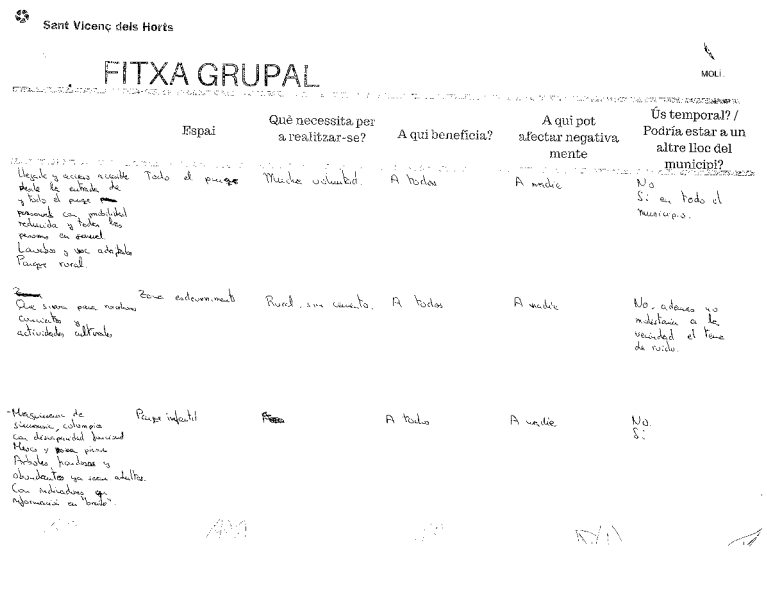 Sant Vicenç dels Horts
FITXA GRUPAL
MOLÍ.
Espai
Què necessita per
a realitzar-se?
A qui beneficia?
A qui pot
afectar negativa
ment
Ús temporal? /
Podría estar a un
altre lloc del
municipi?
Llegada y acceso
desde la entrada de
y todo el parque
personas con mobilidad
reducida y todas las
personas en
Lavabos y adaptados
Parque rural.
Todo el parque
Mucha voluntad.
A todos
A nadie
No
Si en todo el
municipio.
Que sirva para
conciertos y
actividades culturales
Zona esdeveniments
Rural, sin cemento.
A todos
A nadie
No, ademas no
molestaria a la
vecindad el tema
de ruido.
de
columpios
con discapacidad
Mesas y para picnic
Arboles frondosos y
abundantes ya sean adultos.
Con indicadores
información en "braile".
Parque infantil
A todos
A nadie
No.
Si